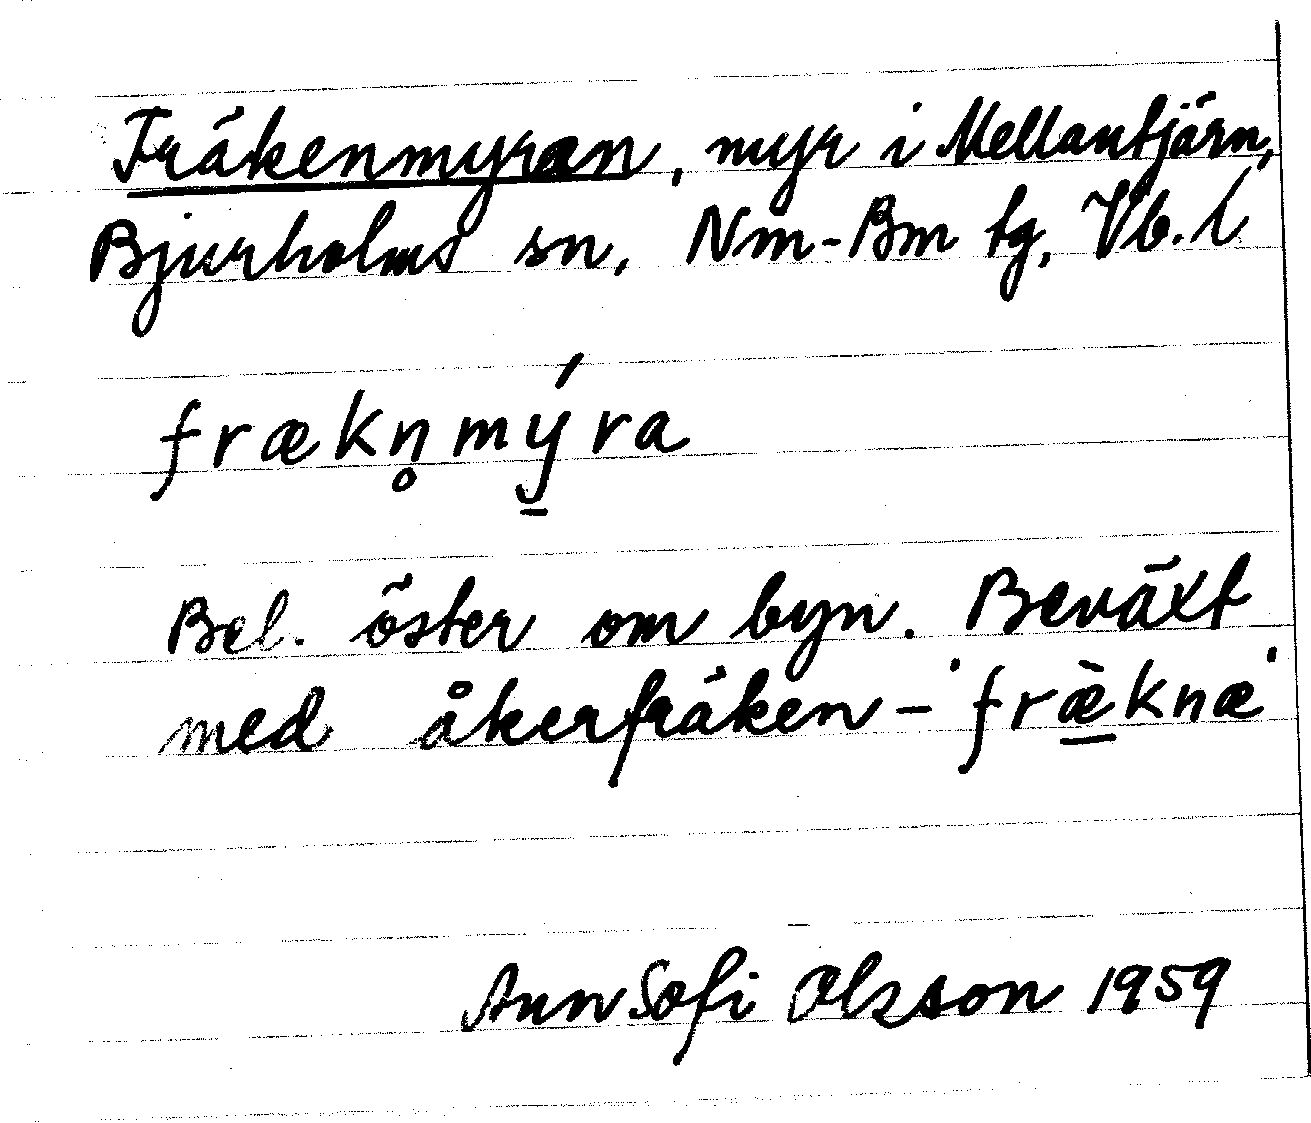 Fräkenmyran, myr i Mellantjärn,
Bjurholms sn, Nm-Bm tg, Vb. l
frækn̥mý̱ra
Bel. öster om byn. Beväxt
med åkerfräken - ˈfræ̱̀knæˈ
Ann Sofi Olsson 1959